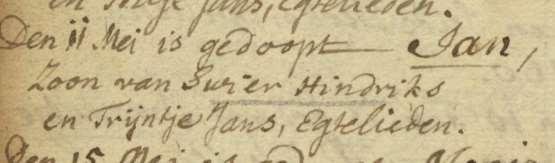 en Trijntje Jans, Egtelieden.
Den 11 Mei is gedoopt Jan,
Zoon van Swier Hindriks
en Trijntje Jans, Egtelieden.
Den 15 Mei is